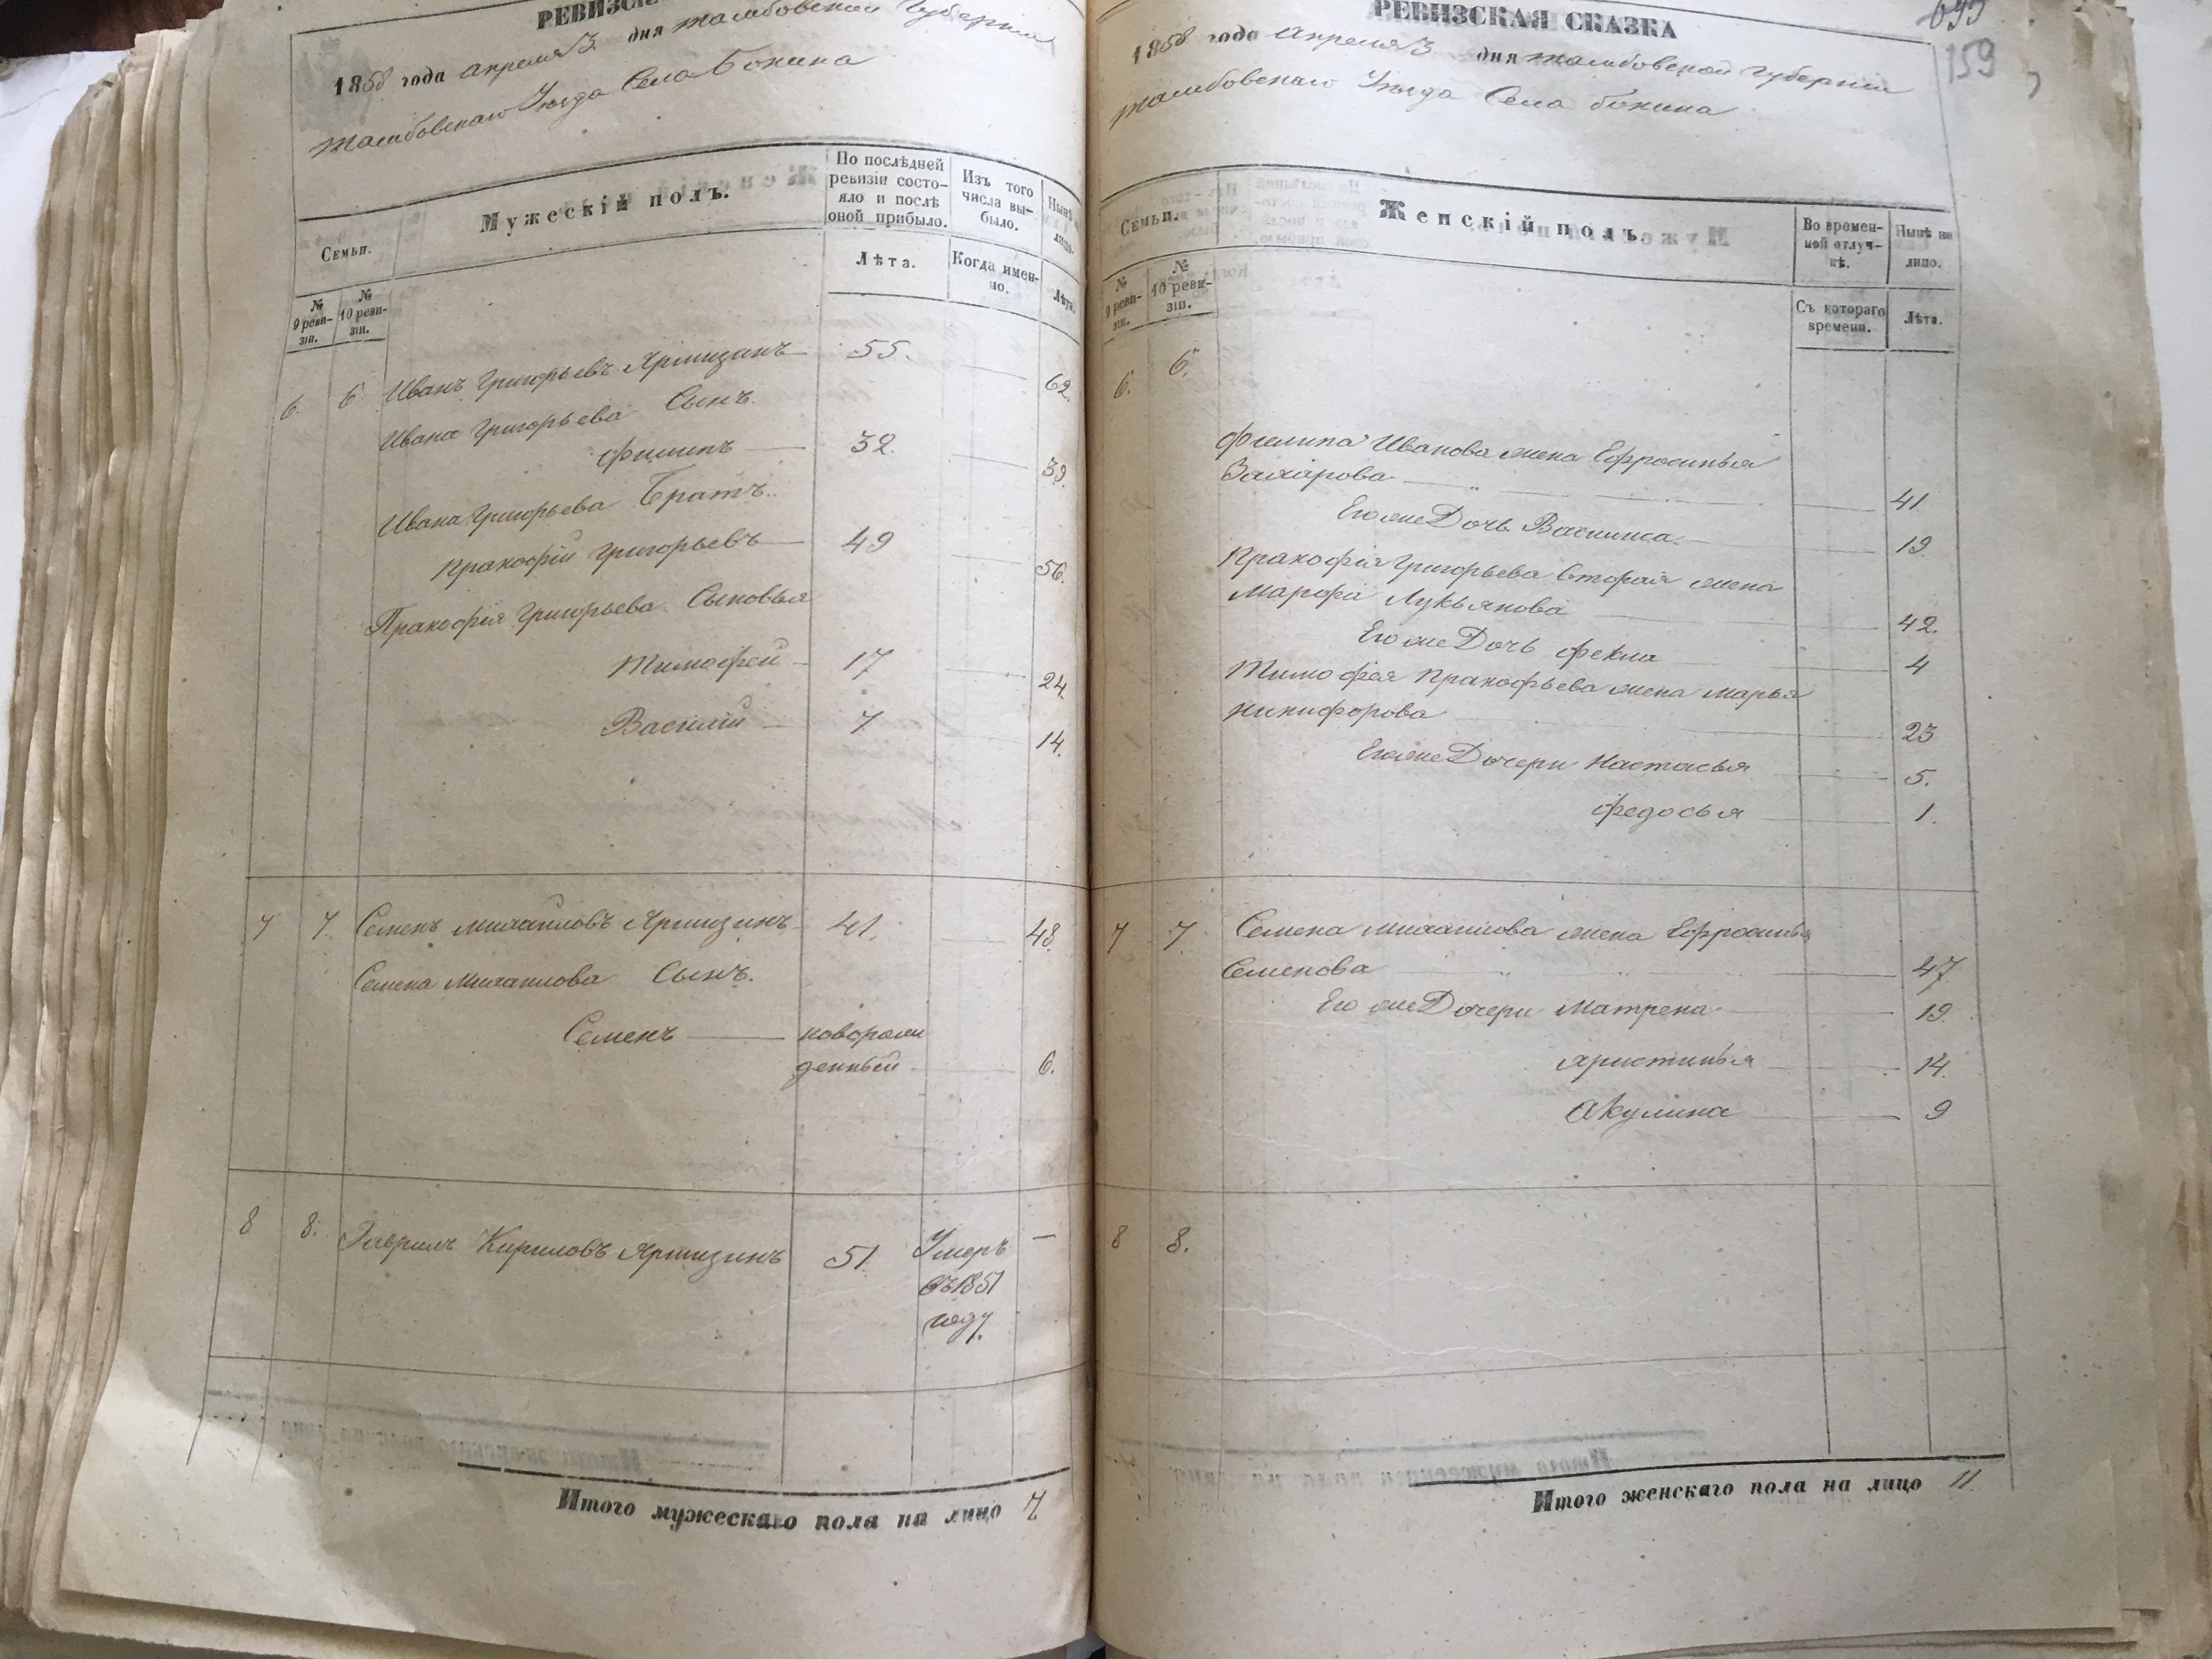 РЕВИЗСК
1858 года апреля 3 дня Тамбовской Губернии
Тамбовскаго Уезда Села Бокина
Семьи.
Мужескій полъ.
По послѣдней ревизіи состо-
яло и послѣ
оной прибыло.
Изъ того
числа вы-
было.
Нынѣ
лицо.
№
9 реви-
зіи.
№
10 реви-
зіи.
Лѣта.
Когда имен-
но.
Лѣта.
6. 6 Иванъ Григорьевъ Ярмизинъ 55. 62.
Ивана Григорьева Сынъ.
Филипъ 32. 39.
Ивана Григорьева Братъ.
Пракофій Григорьевъ 49 56.
Пракофія Григорьева Сыновья
Тимофей 17 24.
Василій 7 14.
7 7. Семенъ Михайловъ Ярмизинъ 41. 48.
Семена Михаилова Сынъ.
Семенъ новорож
денный 6.
8 8. Гаврилъ Кириловъ Ярмизинъ 51. Умеръ —
въ 1851
году.
Итого мужескаго пола на лицо 7
РЕВИЗСКАЯ СКАЗКА
695
159
1858 года апреля 3 дня Тамбовской Губернии
Тамбовскаго Уезда Села Бокина
Семьи.
Женскій полъ.
Во времен-
ной отлуч-
кѣ.
Нынѣ на
лицо.
№
9 реви-
зіи.
№
10 реви-
зіи.
Съ котораго
времени.
Лѣта.
6. 6.
Филипа Иванова жена Ефросинья
Захарова 41
Его же Дочь Василиса 19
Пракофія Григорьева вторая жена
Марфа Лукьянова 42.
Его же Дочь Фекла 4
Тимофея Пракофьева жена Марья
Никифорова 23
Его же Дочери Настасья 5.
Федосья 1.
7 7. Семена Михаилова жена Ефросинья
Семенова 47
Его же Дочери Матрена 19
Христинья 14.
Акулина 9
8 8.
Итого женскаго пола на лицо 11